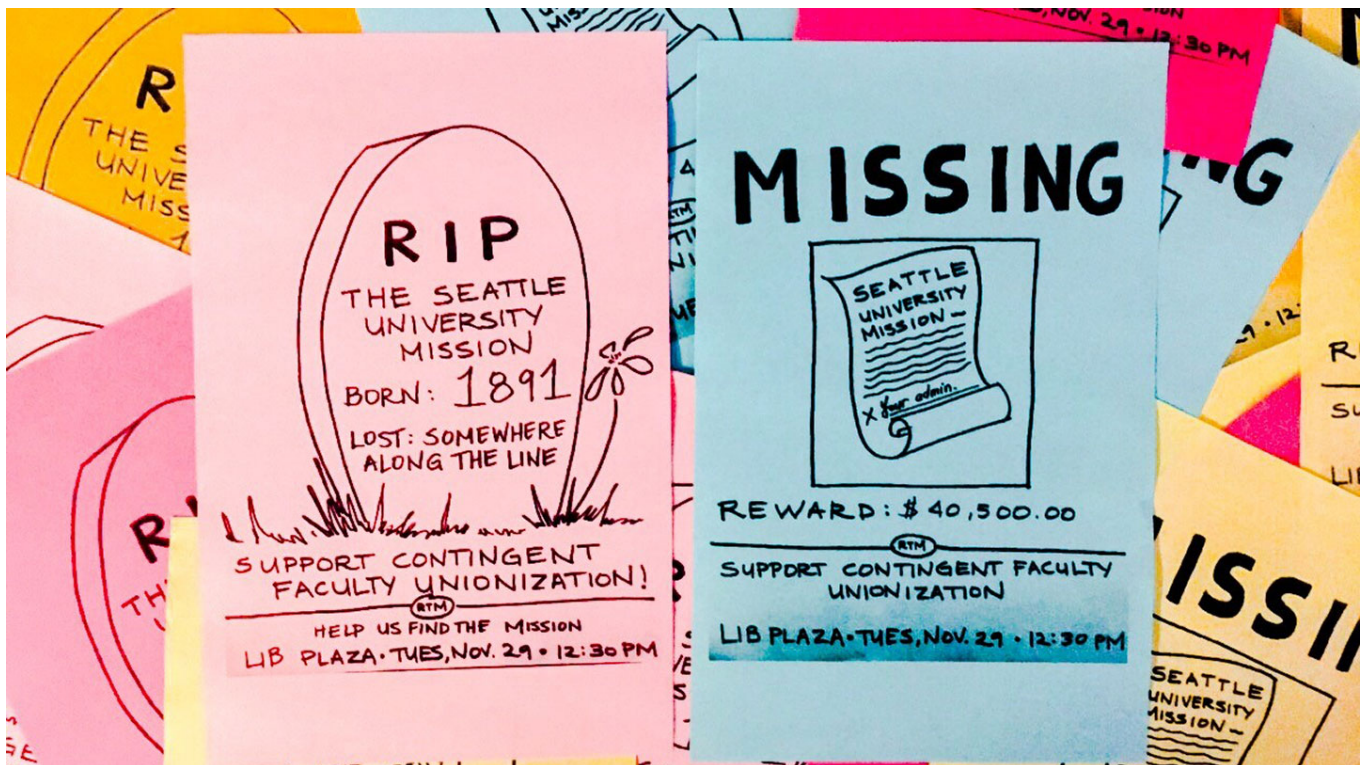 RIP
THE SEATTLE
UNIVERSITY
MISSION
BORN: 1891
LOST: SOMEWHERE
ALONG THE LINE
SUPPORT CONTINGENT
FACULTY UNIONIZATION!
RTM
HELP US FIND THE MISSION
LIB PLAZA • TUES, NOV. 29 • 12:30 PM
MISSING
SEATTLE
UNIVERSITY
MISSION –
x Your admin.
REWARD: $40,500.00
RTM
SUPPORT CONTINGENT FACULTY
UNIONIZATION
LIB PLAZA • TUES, NOV. 29 • 12:30 PM
R
THE S
UNIVE
MISS
NOV. 29 • 12:30 PM
NG
R
TH
ISSI
SEATTLE
UNIVERSITY
MISSION –